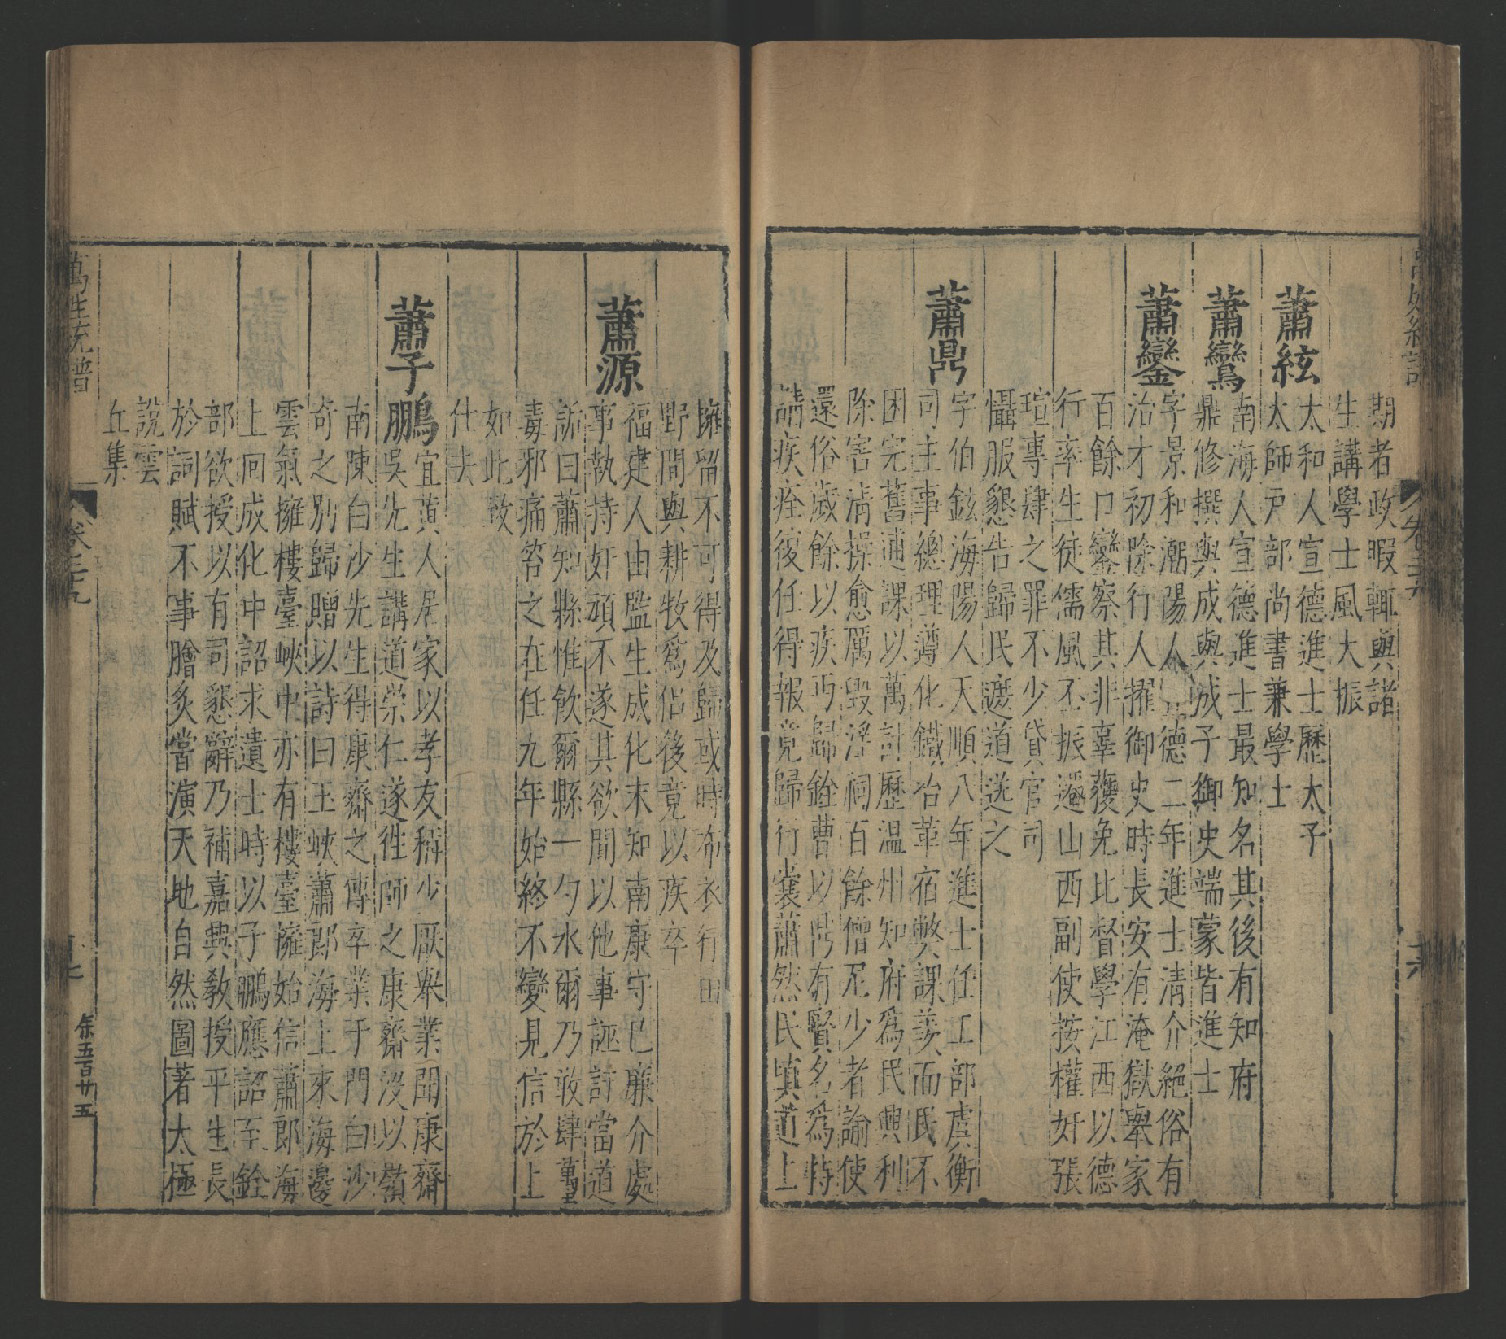 期者政暇輒與諸
生講學士風大振
蕭絃
太和人宣德進士歷太子
太師戶部尚書兼學士
蕭鸞
南海人宣德進士最知名其後有知府
鼎修撰與成與成子御史端蒙皆進士
蕭鑾
字景和潮陽人 德二年進士清介絕俗有
治才初除行人擢御史時長安有淹獄舉家
百餘口鑾察其非辜獲免比督學江西以德
行率生徒儒風丕振遷山西副使按權奸張
瑄專肆之罪不少貸官司
懾服懇告歸民遮道送之
蕭鼎
字伯鉉海陽人天順八年進士任工部虞衡
司主事總理遵化鐵冶革宿弊課羡而民不
困完舊逋課以萬計歷溫州知府為民興利
除害清操愈厲毀淫祠百餘僧尼少者諭使
還俗歲餘以疾丐歸銓曹以 有賢名為特
請疾痊復任得報竟歸行囊蕭然民填道上
擁留不可得及歸或時布衣行田
野間與耕牧為侶後竟以疾卒
蕭源
福建人由監生成化末知南康守已廉介處
事執持奸頑不遂其欲間以他事誣訐當道
訴曰蕭知縣惟飲爾縣一勺水爾乃敢肆萋
毒邪痛笞之在任九年始終不變見信於上
如此致
仕去
蕭子鵬
宜黃人居家以孝友稱少厭舉業聞康齋
吳先生講道崇仁遂徃師之康齋沒以嶺
南陳白沙先生得康齋之傳卒業于門白沙
奇之別歸贈以詩曰玉峽蕭郎海上來海邊
雲氣擁樓臺峽中亦有樓臺擁始信蕭郎海
上回成化中詔求遺士時以子鵬應詔至銓
部欲授以有司懇辭乃補嘉興教授平生長
於詞賦不事膾炙當演天地自然圖著太極
說雲
丘集
萬姓統譜
卷三十九
朱五百廿五